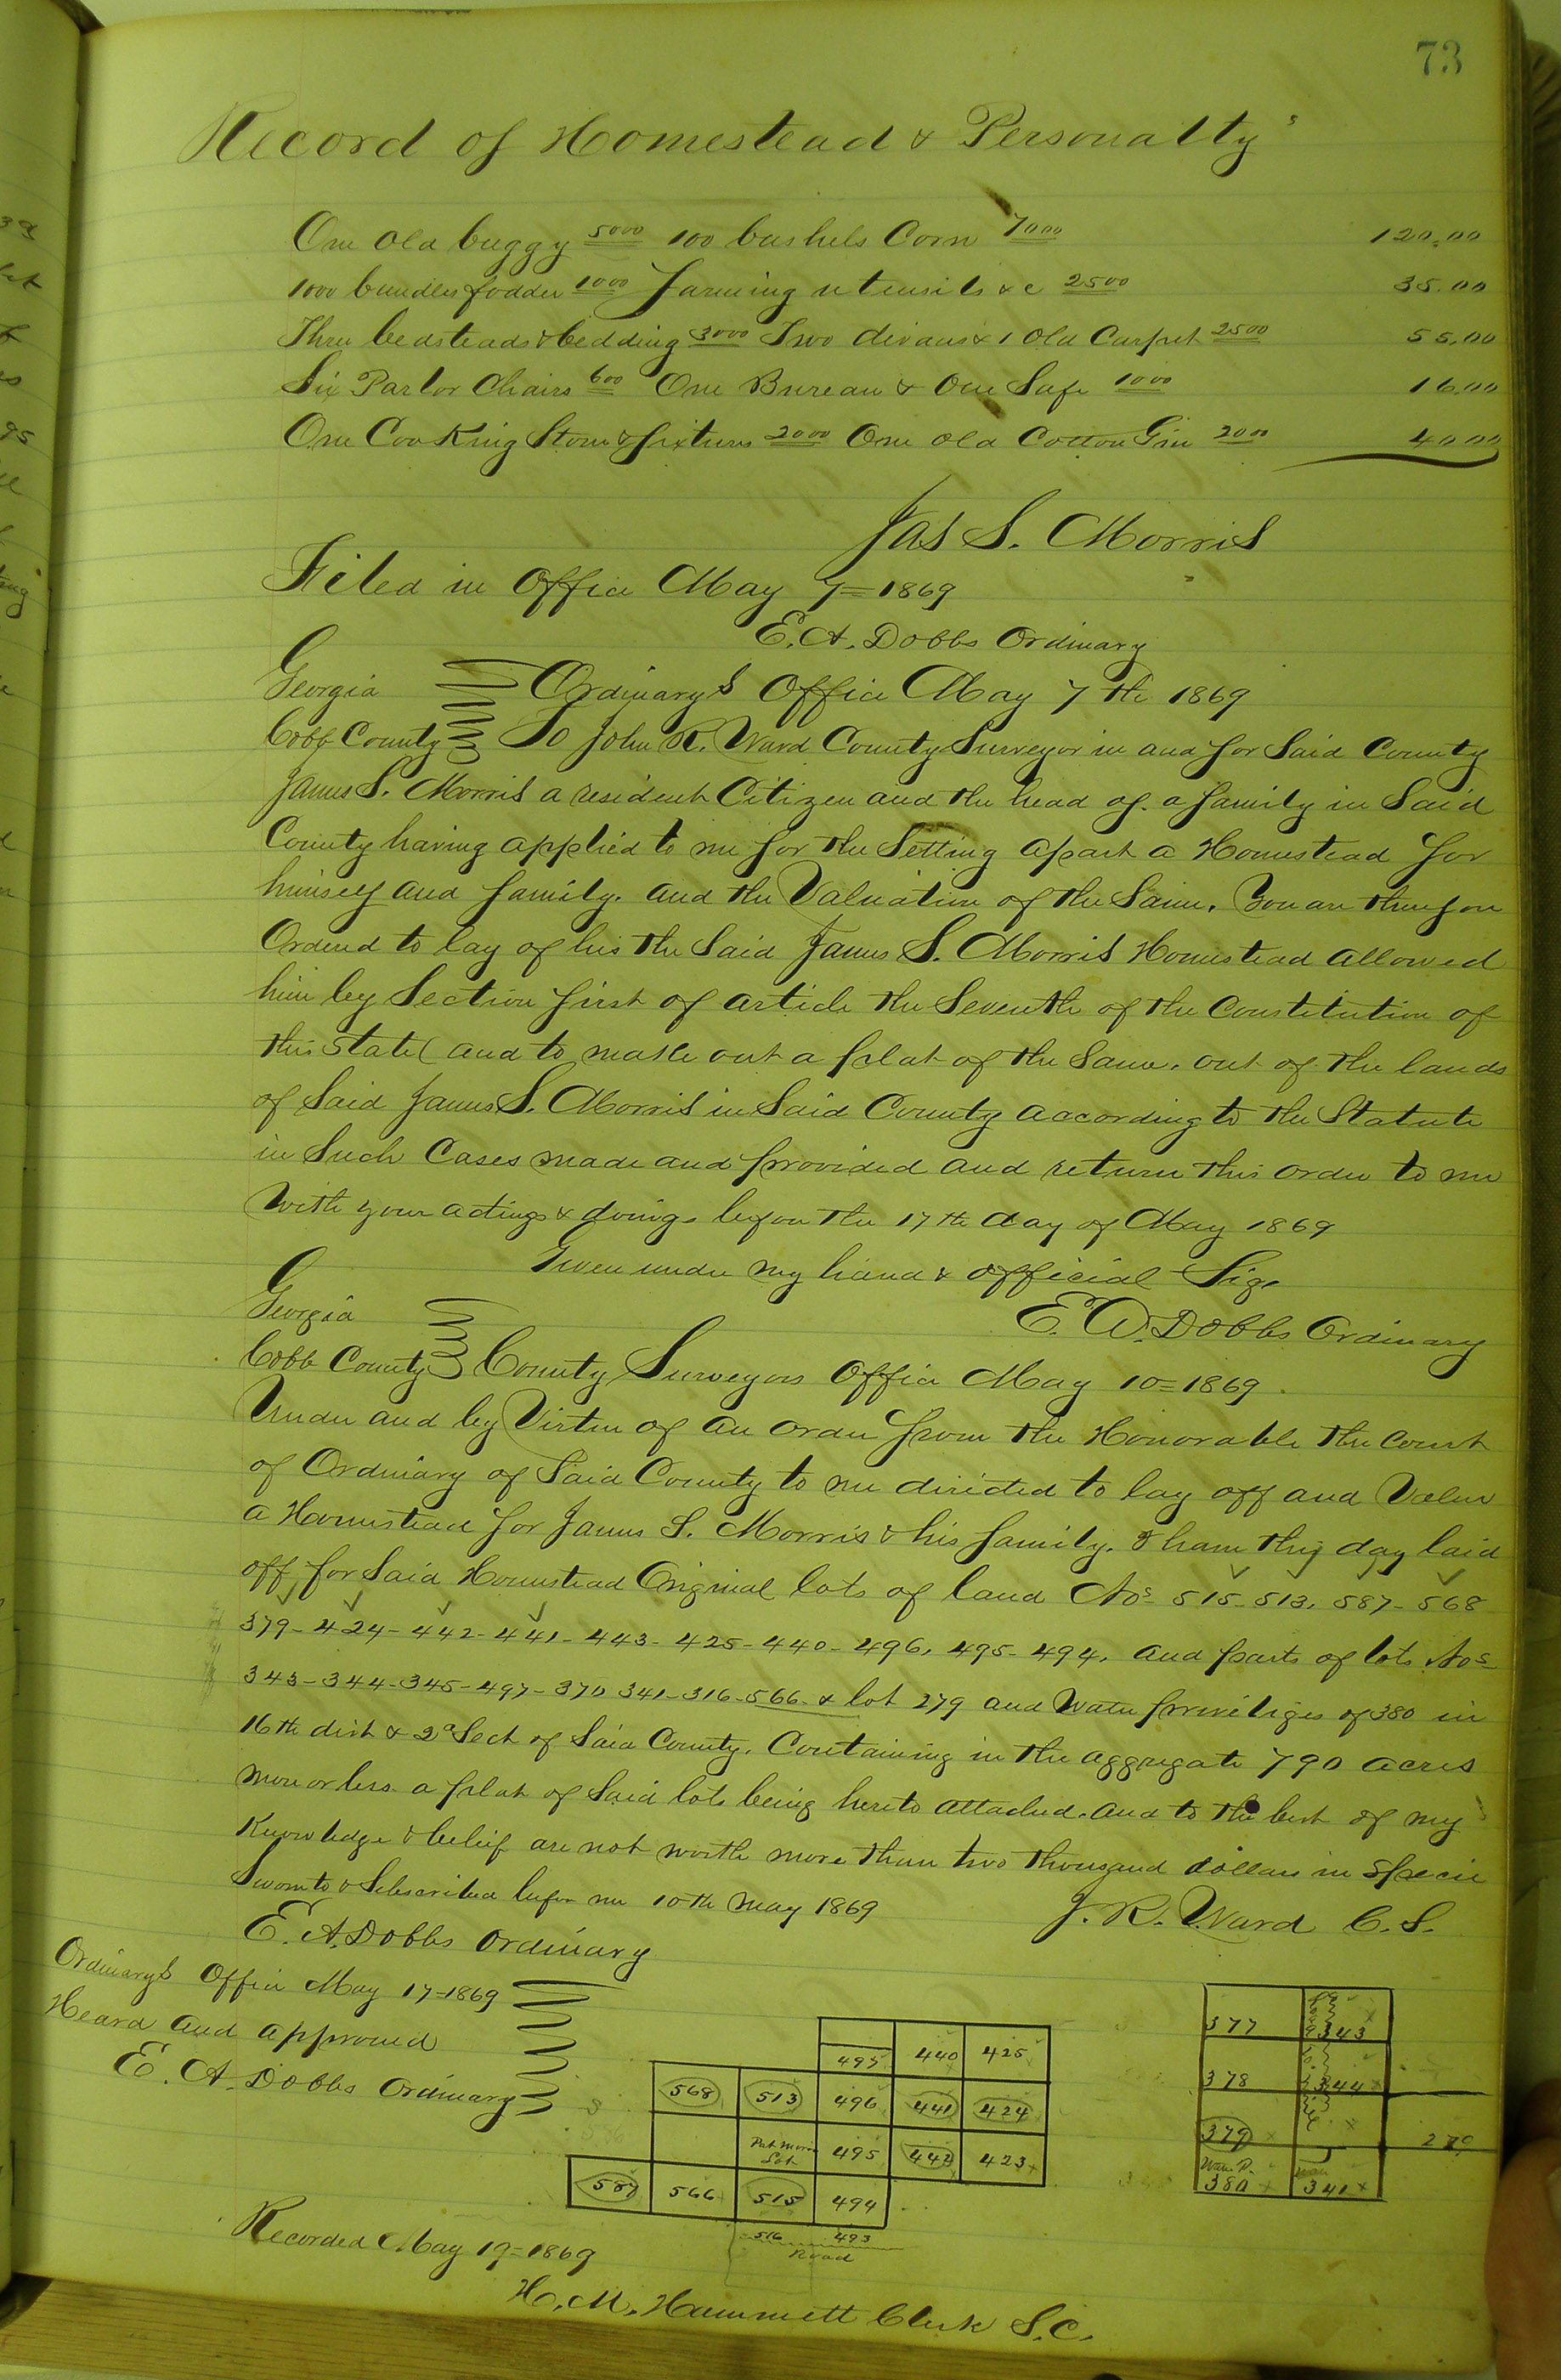 73
Record of Homestead & Personalty s
One Old buggy 5000 100 bushels Corn 7000 120.00
1000 bundles fodder 1000 farming utensils &c 2500 35.00
Three bedsteads & bedding 3000 Two divans & 1 Old Carpet 2500 55.00
Six Parlor Chairs 600 One Bureau & One Safe 1000 16.00
One Cooking Stove & fixtures 2000 One old Cotton Gin 2000 40.00
Jas S. Morris
Filed in Office May 7=1869
E. A. Dobbs Ordinary
Georgia Ordinarys Office May 7th 1869
Cobb County To John R. Ward County Surveyor in and for Said County
James S. Morris a resident Citizen and the head of a family in Said
County having applied to me for the Setting apart a Homestead for
himself and family. and the Valuation of the Same. You are therefore
Ordered to lay of his the Said James S. Morris Homestead allowed
him by Section first of article the Seventh of the Constitution of
this State (and to make out a plat of the Same. out of the lands
of Said James S. Morris in Said County according to the Statute
in Such Cases made and provided and return this order to me
With your actings & doings before the 17th day of May 1869
Given under my hand & official Sig.
E. A. Dobbs Ordinary
Georgia
Cobb County County Surveyors Office May 10=1869
Under and by Virtue of an order from the Honorable the Court
of Ordinary of Said County to me directed to lay off and Value
a Homestead for James S. Morris & his family. I have this day laid
off for Said Homestead Original lots of land Nos 515-513. 587-568
379-424-442-441-443-425-440-496. 495-494. and parts of lots Nos
343-344-345-497-370 341-316-566 & lot 279 and Water priveliges of 380 in
16th dist & 2d Sect of Said County. Containing in the aggregate 790 acres
more or less a plat of Said lots being hereto attached. and to the best of my
Knowledge & belief are not worth more than two thousand dollars in Specie
Sworn to & Subscribed before me 10th May 1869
J. R. Ward C. S.
E. A. Dobbs Ordinary
Ordinarys Office May 17-1869
Heard and approved
E. A. Dobbs Ordinary
497 440 425
568 513 496 441 424
Pat Morris Lot 495 442 423
587 566 515 494
516 493
Road
377 343
378 344
379 279
Water P. 380 341
Recorded May 19=1869
H. M. Hammett Clerk S.C.